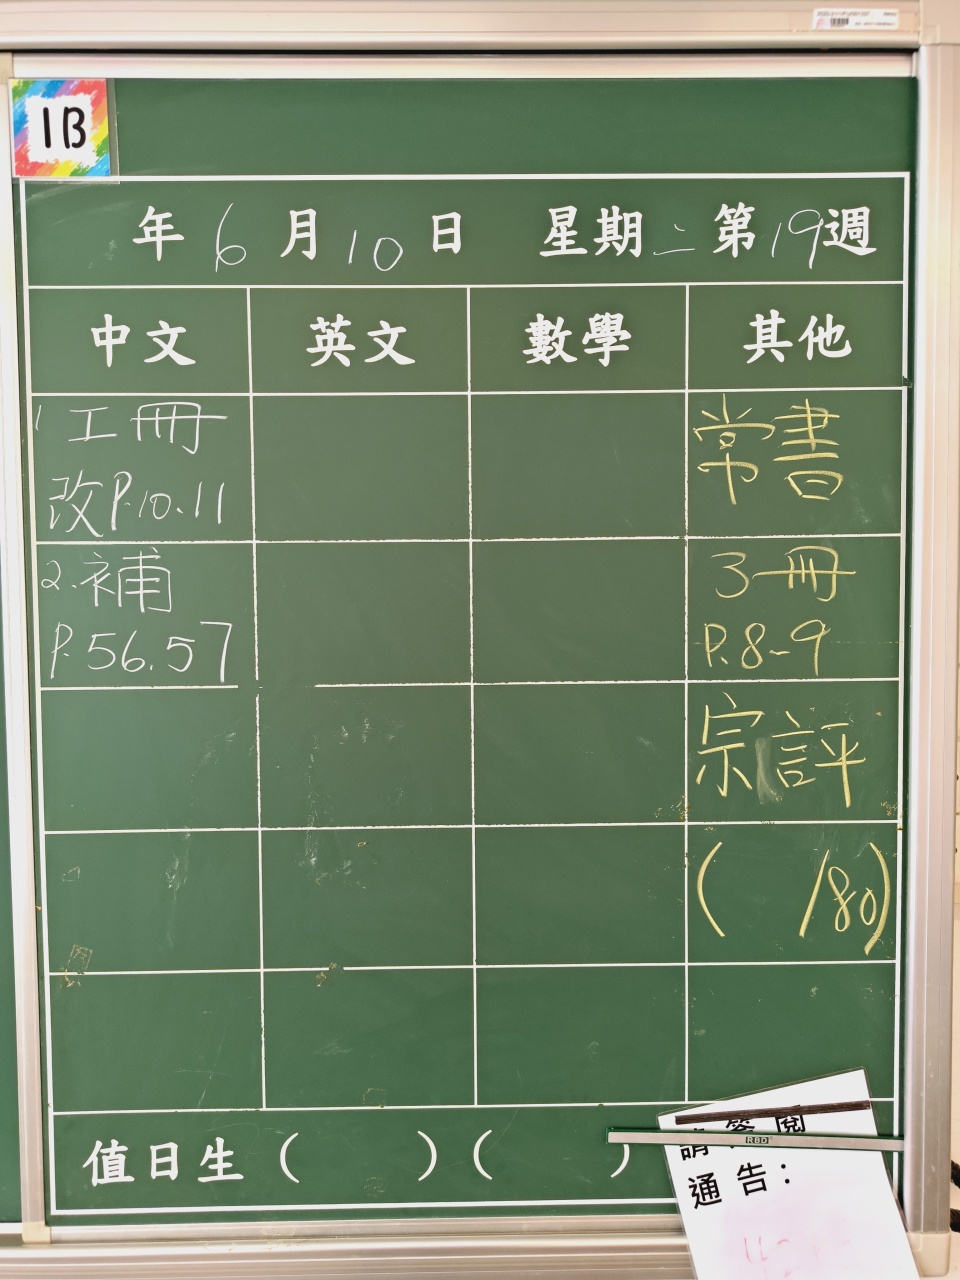 1B
年 6 月 10 日 星期二 第 19 週
中文 英文 數學 其他
1 工冊
改P.10.11
2.補
P.56.57
常書
3冊
P.8-9
宗評
( /80)
值日生( )( )
請簽閱
通告：